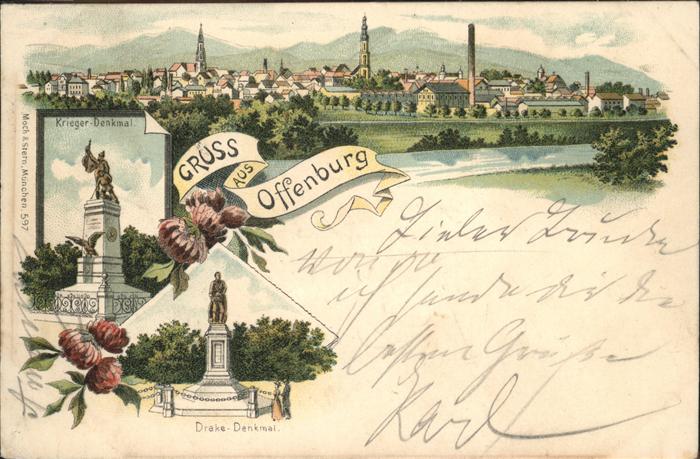 Krieger-Denkmal.
GRUSS
AUS
Offenburg
Moch & Stern, München 597
Drake-Denkmal.
Lieber
sende dir die
besten Grüße
Karl